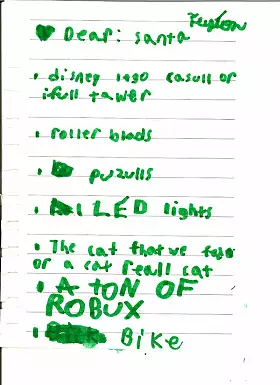 Dear: santa
disney lego casull or
ifull tawer
roller blads
puzulls
LED lights
The cat that we
or a cat reall cat
A TON OF
ROBUX
Bike